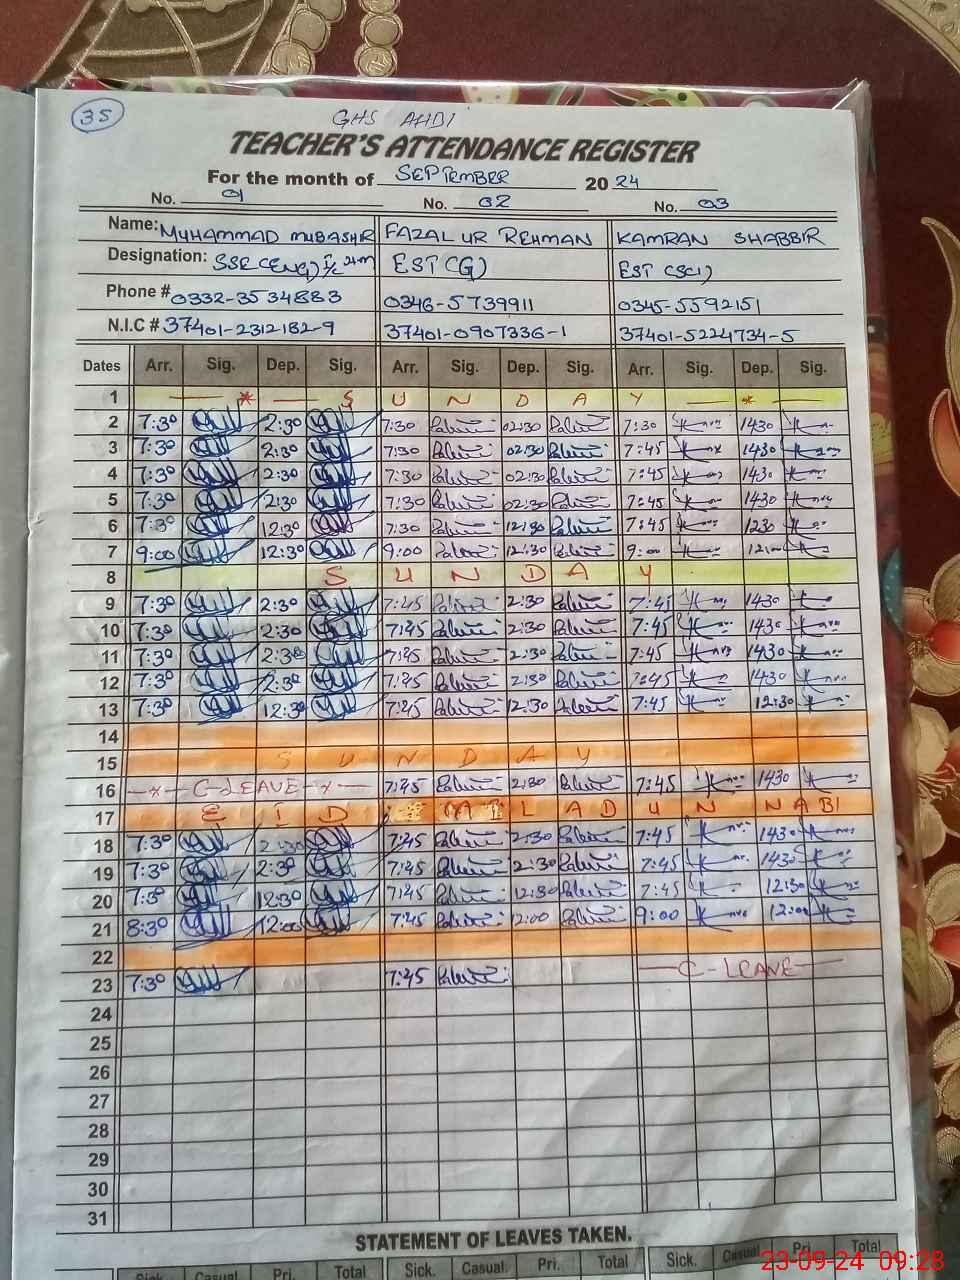 35
GHS AHDI
TEACHER'S ATTENDANCE REGISTER
For the month of SEPTEMBER 2024
No. 01 No. 02 No. 03
Name: MUHAMMAD MUBASHIR FAZAL UR REHMAN KAMRAN SHABBIR
Designation: SSE (ENG) I/C H-M EST (G) EST (SCI)
Phone # 0332-3534883 0346-5739911 0345-5592151
N.I.C # 37401-2312182-9 37401-0907336-1 37401-5224734-5
Dates Arr. Sig. Dep. Sig. Arr. Sig. Dep. Sig. Arr. Sig. Dep. Sig.
1 * S U N D A Y *
2 7:30 2:30 7:30 02:30 7:30 1430
3 7:30 2:30 7:30 02:30 7:45 1430
4 7:30 2:30 7:30 02:30 7:45 1430
5 7:30 2:30 7:30 02:30 7:45 1430
6 7:30 12:30 7:30 12:30 7:45 1230
7 9:00 12:30 9:00 12:30 9:00 12:00
8 S U N D A Y
9 7:30 2:30 7:45 2:30 7:45 1430
10 7:30 2:30 7:45 2:30 7:45 1430
11 7:30 2:30 7:45 2:30 7:45 1430
12 7:30 2:30 7:45 2:30 7:45 1430
13 7:30 12:30 7:45 12:30 7:45 12:30
14
15 S U N D A Y
16 -x- C-LEAVE -x- 7:45 2:30 7:45 1430
17 E I D M I L A D U N NABI
18 7:30 2:30 7:45 2:30 7:45 1430
19 7:30 2:30 7:45 2:30 7:45 1430
20 7:30 12:30 7:45 12:30 7:45 12:30
21 8:30 12:00 7:45 12:00 9:00 12:00
22
23 7:30 7:45 C-LEAVE
24
25
26
27
28
29
30
31
STATEMENT OF LEAVES TAKEN.
Sick. Casual. Pri. Total Sick. Casual. Pri. Total Sick. Casual Pri. Total
23-09-24 09:28